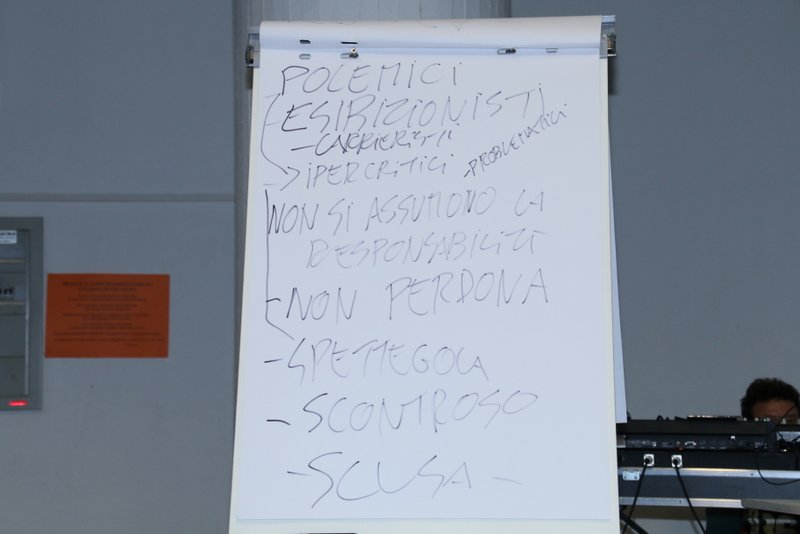 POLEMICI
ESIBIZIONISTI
- CARRIERISTI
-> IPERCRITICI - PROBLEMATICI
NON SI ASSUMONO LA
RESPONSABILITÀ
- NON PERDONA
- SPETTEGOLA
- SCONTROSO
- SCUSA -